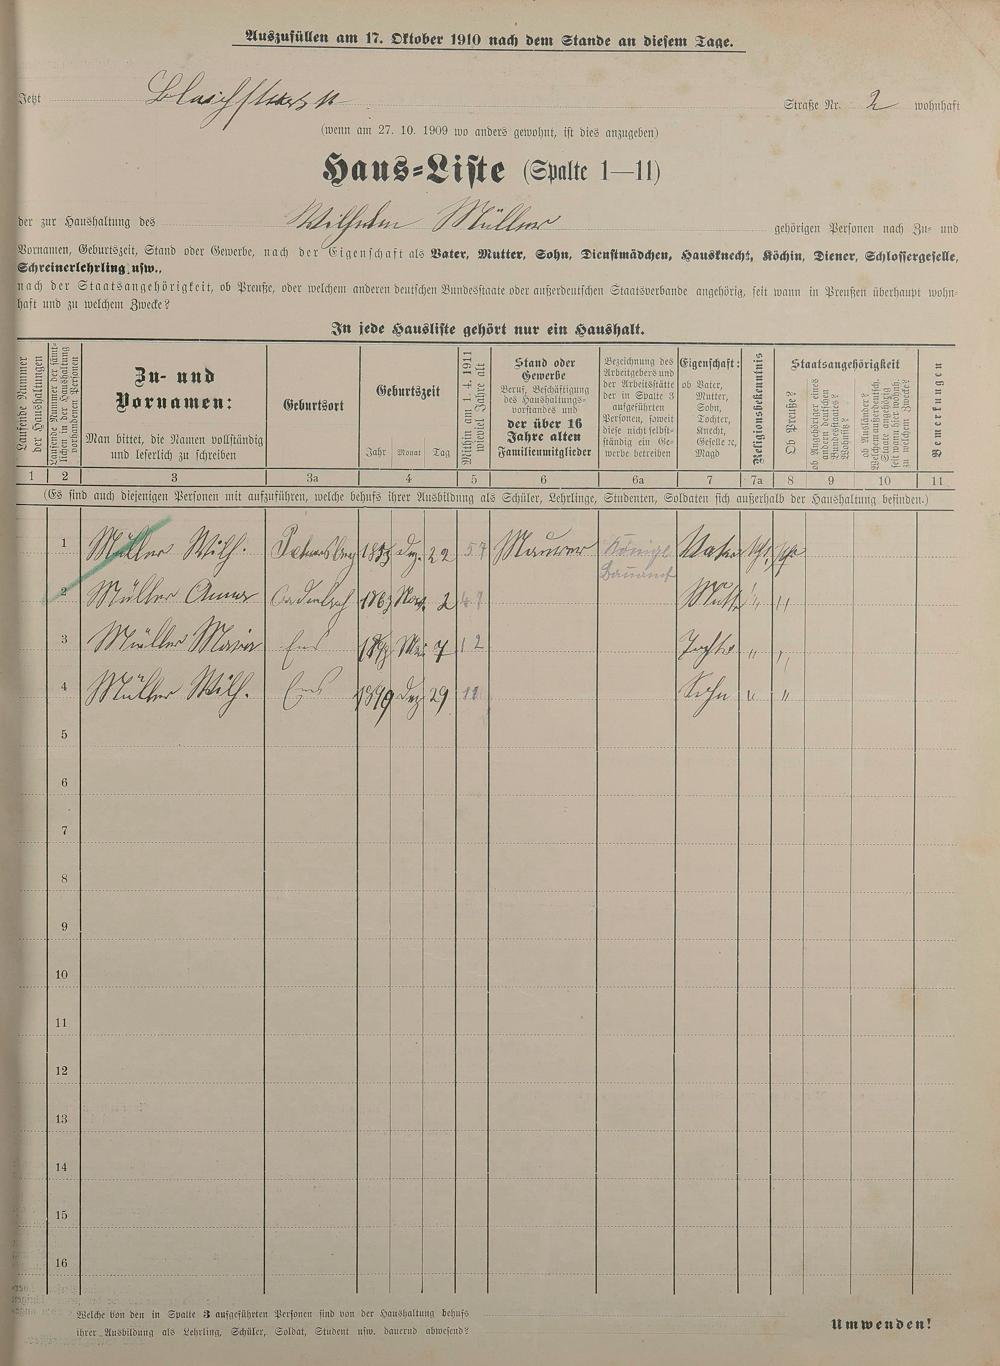 Auszufüllen am 17. Oktober 1910 nach dem Stande an diesem Tage.
Jetzt Straße Nr. 2 wohnhaft
(wenn am 27. 10. 1909 wo anders gewohnt, ist dies anzugeben)
Haus-Liste (Spalte 1—11)
der zur Haushaltung des Wilhelm Müller gehörigen Personen nach Zu- und
Vornamen, Geburtszeit, Stand oder Gewerbe, nach der Eigenschaft als Vater, Mutter, Sohn, Dienstmädchen, Hausknecht, Köchin, Diener, Schlossergeselle,
Schreinerlehrling usw.,
nach der Staatsangehörigkeit, ob Preuße, oder welchem anderen deutschen Bundesstaate oder außerdeutschen Staatsverbande angehörig, seit wann in Preußen überhaupt wohn-
haft und zu welchem Zwecke?
In jede Hausliste gehört nur ein Haushalt.
Laufende Nummer der Haushaltungen
Laufende Nummer der sämt-
lichen in der Haushaltung
vorhandenen Personen
Zu- und
Vornamen:
Man bittet, die Namen vollständig
und leserlich zu schreiben
Geburtsort
Geburtszeit
Jahr Monat Tag
Mithin am 1. 4. 1911
wieviel Jahre alt
Stand oder
Gewerbe
Beruf, Beschäftigung
des Haushaltungs-
vorstandes und
der über 16
Jahre alten
Familienmitglieder
Bezeichnung des
Arbeitgebers und
der Arbeitsstätte
der in Spalte 3
aufgeführten
Personen, soweit
diese nicht selbst-
ständig ein Ge-
werbe betreiben
Eigenschaft:
ob Vater,
Mutter,
Sohn,
Tochter,
Knecht,
Geselle ꝛc,
Magd
Religionsbekenntnis
Staatsangehörigkeit
Ob Preuße?
ob Angehöriger eines
andern deutschen
Bundesstaates?
Wohnsitz?
ob Ausländer?
Welchem außerdeutsch.
Staate angehörig
seit wann hier wohnh.
zu welchem Zwecke?
Bemerkungen
1 2 3 3a 4 5 6 6a 7 7a 8 9 10 11
(Es sind auch diejenigen Personen mit aufzuführen, welche behufs ihrer Ausbildung als Schüler, Lehrlinge, Studenten, Soldaten sich außerhalb der Haushaltung befinden.)
1 Müller Wilh. Dez. 22 57 Maurer Königl. Bauamt Vater
2 Müller Anna Cadenbach Nov. 2 Mutter " "
3 Müller Maria Ems Mai 7 12 Tochter " "
4 Müller Wilh. Ems 1899 Dez 29 11 Sohn " "
5
6
7
8
9
10
11
12
13
14
15
16
Welche von den in Spalte 3 aufgeführten Personen sind von der Haushaltung behufs
ihrer Ausbildung als Lehrling, Schüler, Soldat, Student usw. dauernd abwesend?
Umwenden!